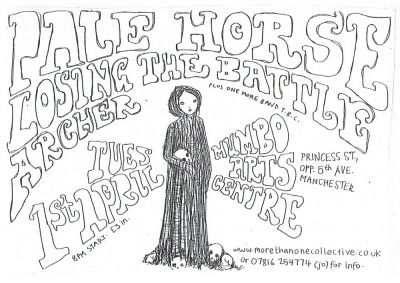 PALE HORSE
LOSING THE BATTLE
ARCHER
PLUS ONE MORE BAND T.B.C.
TUES
1st APRIL
8PM START. £3 in.
MUMBO
ARTS
CENTRE
PRINCESS ST,
OPP. 5th AVE.
MANCHESTER
www.morethanonecollective.co.uk
or 07816 254774 (jo) for info-